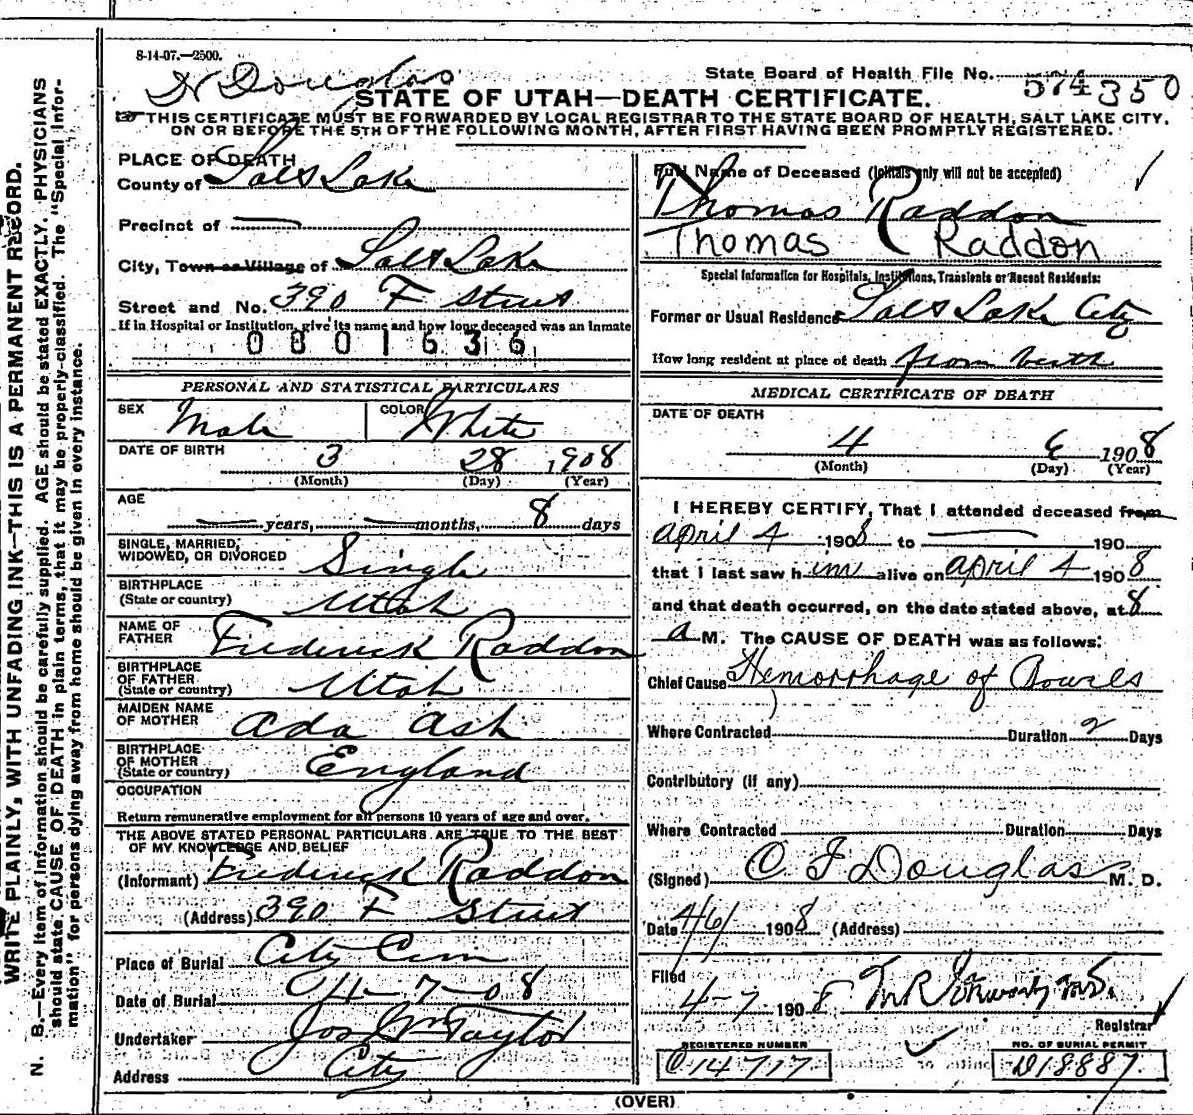 8-14-07.—2500.
Douglas
State Board of Health File No. 574 350
STATE OF UTAH—DEATH CERTIFICATE.
THIS CERTIFICATE MUST BE FORWARDED BY LOCAL REGISTRAR TO THE STATE BOARD OF HEALTH, SALT LAKE CITY,
ON OR BEFORE THE 5TH OF THE FOLLOWING MONTH, AFTER FIRST HAVING BEEN PROMPTLY REGISTERED.
PLACE OF DEATH
County of Salt Lake
Precinct of —
City, Town or Village of Salt Lake
Street and No. 390 F Street
If in Hospital or Institution, give its name and how long deceased was an inmate
0801636
PERSONAL AND STATISTICAL PARTICULARS
SEX Male COLOR White
DATE OF BIRTH 3 28 1908
(Month) (Day) (Year)
AGE
— years, — months, 8 days
SINGLE, MARRIED,
WIDOWED, OR DIVORCED Single
BIRTHPLACE
(State or country) Utah
NAME OF
FATHER Frederick Raddon
BIRTHPLACE
OF FATHER
(State or country) Utah
MAIDEN NAME
OF MOTHER Ada Ash
BIRTHPLACE
OF MOTHER
(State or country) England
OCCUPATION
Return remunerative employment for all persons 10 years of age and over.
THE ABOVE STATED PERSONAL PARTICULARS ARE TRUE TO THE BEST
OF MY KNOWLEDGE AND BELIEF
(Informant) Frederick Raddon
(Address) 390 F Street
Place of Burial City Cem
Date of Burial 4-7-08
Undertaker Jos Wm Taylor
Address City
Full Name of Deceased (Initials only will not be accepted)
Thomas Raddon
Thomas Raddon
Special Information for Hospitals, Institutions, Transients or Recent Residents:
Former or Usual Residence Salt Lake City
How long resident at place of death from birth
MEDICAL CERTIFICATE OF DEATH
DATE OF DEATH
4 6 1908
(Month) (Day) (Year)
I HEREBY CERTIFY, That I attended deceased from
April 4 1908 to — 190
that I last saw him alive on April 4 1908
and that death occurred, on the date stated above, at 8
a M. The CAUSE OF DEATH was as follows:
Chief Cause Hemorrhage of Bowels
Where Contracted Duration 2 Days
Contributory (if any)
Where Contracted Duration Days
(Signed) C F Douglas M. D.
Date 4/6/ 1908 (Address)
Filed
4-7- 1908
Registrar
REGISTERED NUMBER
C 14717
NO. OF BURIAL PERMIT
D18887
(OVER)
WRITE PLAINLY, WITH UNFADING INK—THIS IS A PERMANENT RECORD.
N. B.—Every item of information should be carefully supplied. AGE should be stated EXACTLY. PHYSICIANS
should state CAUSE OF DEATH in plain terms, that it may be properly classified. The "Special Infor-
mation" for persons dying away from home should be given in every instance.